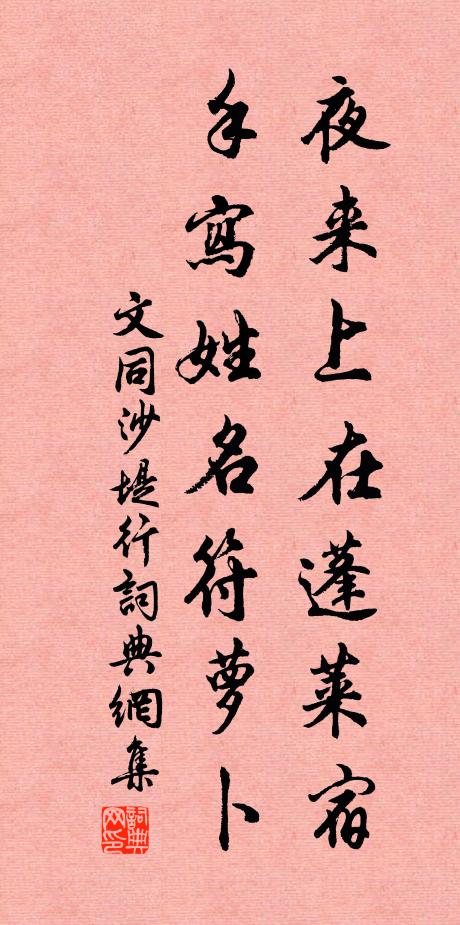 夜来上在蓬莱宿
手寫姓名符夢卜
文同沙堤行詞典網集
詞典网印